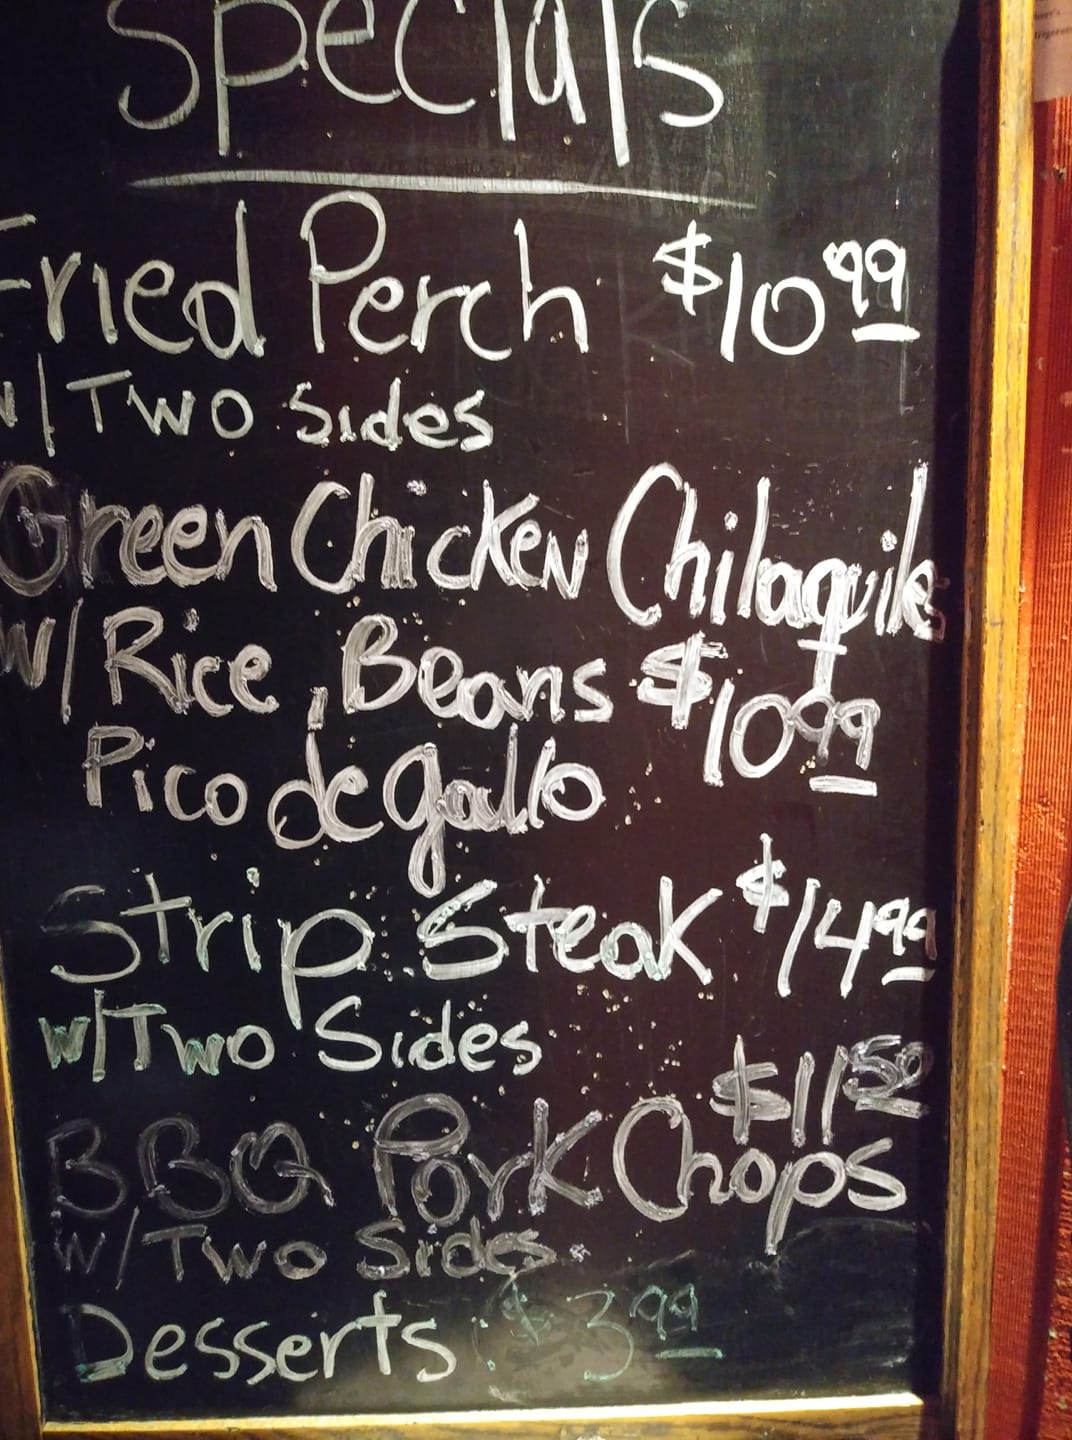 Specials
Fried Perch $10.99
w/ Two Sides
Green Chicken Chilaquiles
w/ Rice, Beans $10.99
Pico de gallo
Strip Steak $14.99
w/ Two Sides
$11.50
BBQ Pork Chops
w/ Two Sides
Desserts: $3.99